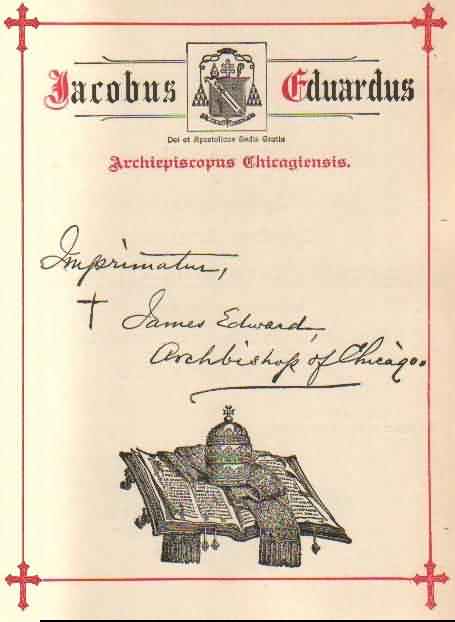 Jacobus Eduardus
Dei et Apostolicae Sedis Gratia
Archiepiscopus Chicagiensis.
Imprimatur,
† James Edward,
Archbishop of Chicago.